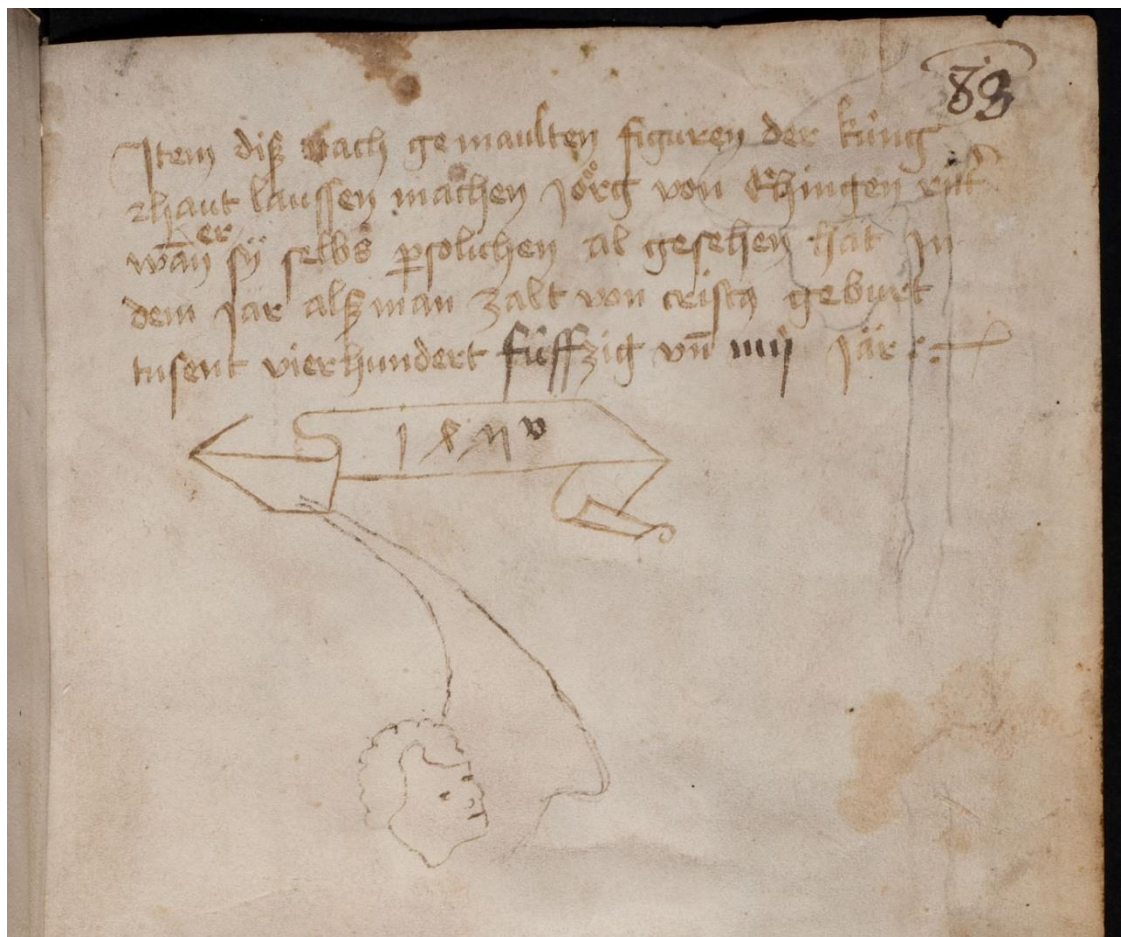 83
Item diß nach gemaulten figuren der küng
haut laussen machen Jörg von Ehingen ritt
er
wañ sÿ selbs psolichen al gesehen hat In
dem jar alß man zalt von cristÿ geburt
tusent vierhundert fúffzig vn̄ iiij Jar